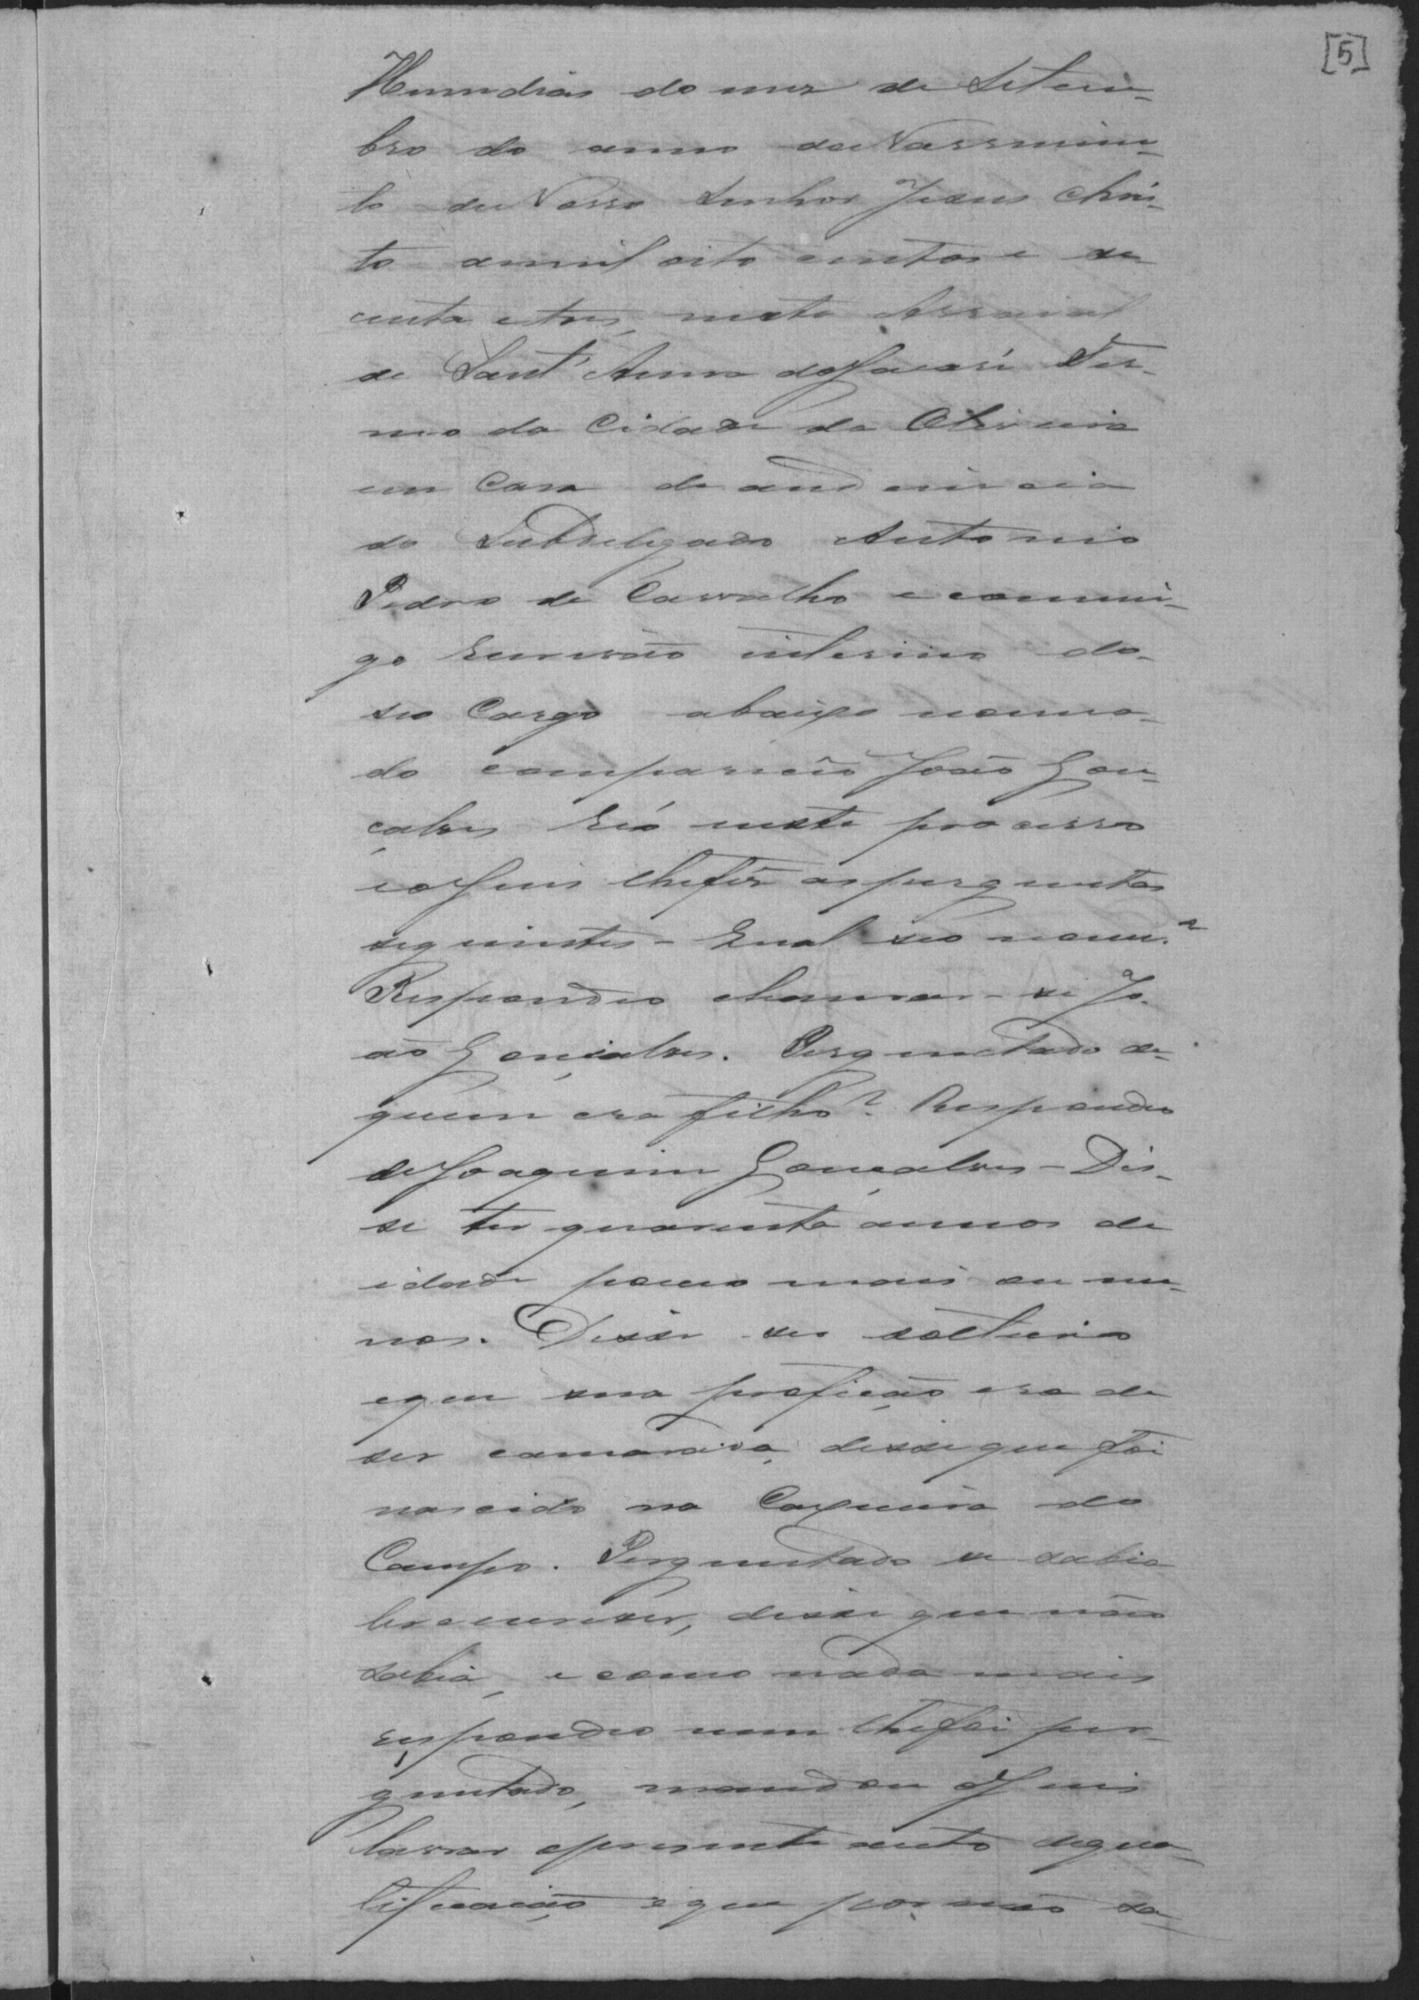 [5]
Hum dias do mez de Setem-
bro do anno do Nascimen-
to de Nosso Senhor Jesus Chris-
to de mil oito centos e se
centa e tres, neste Arraial
de Sant' Anna do Jacaré Ter-
mo da Cidade da Oliveira
em Casa de audiencia
do Subdelegado Antonio
Pedro de Carvalho e commi-
go Escrivão interino do
seo Cargo abaixo nomea-
do compareceo João Gon-
çalves Reó neste processo
e o Juis lhe fez as perguntas
seguintes - Qual seo nome?
Respondeo chamar-se Jo-
ão Gonçalves. Perguntado de
quem era filho? Respondeo
de Joaquim Gonçalves - Dis-
se ter quarenta annos de
idade pouco mais ou me-
nos. Disse ser solteiro
e que sua profição era de
ser camarada, disse que foi
nascido na Caxueira do
Campo. Perguntado se sabia
ler e escrever, disse que não
sabia, e como nada mais
respondeo nem lhe foi per-
guntado, mandou o Juis
lavrar o presente auto de qua-
lificação e que por não sa-